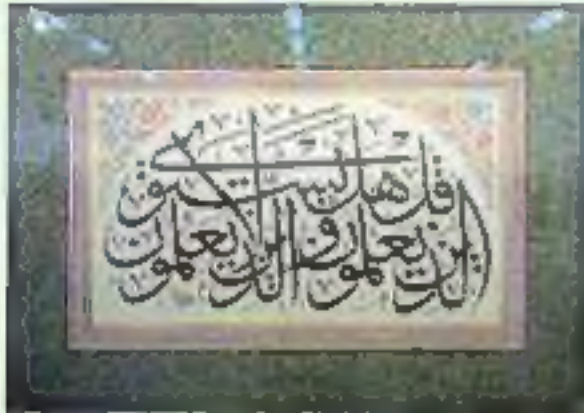 قل هل يستوي
الذين يعلمون والذين لا يعلمون